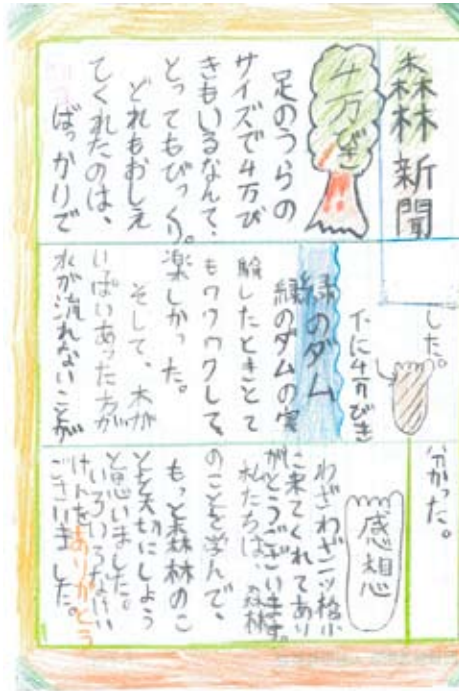 森林新聞
4万びき
足のうらの
サイズで4万び
きもいるなんて、
とってもびっくり。
どれもおしえ
てくれたのは、
ばっかりで
した。
下に4万びき
緑のダム
緑のダムの実
験したときとて
もワクワクして、
楽しかった。
そして、木が
いっぱいあった方が
水が流れないことが
分かった。
感想
わざわざ三ツ格小
に来てくれてあり
がとうございます。
私たちは、森林
のことを学んで、
もっと森林のこ
とを大切にしょう
と思いました。
いろいろなたい
けんをありがとう
ございました。